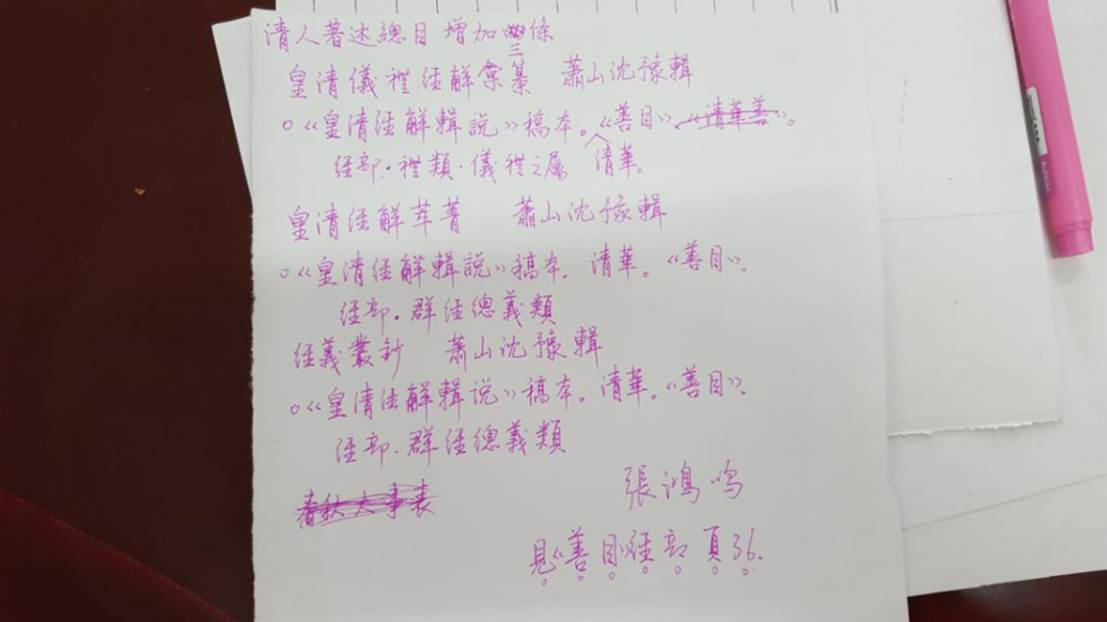 清人著述總目增加三條
皇清儀禮經解彙纂 蕭山沈豫輯
○《皇清經解輯說》稿本。清華。《善目》。
經部·禮類·儀禮之屬
皇清經解萃菁 蕭山沈豫輯
○《皇清經解輯說》稿本。清華。《善目》。
經部·群經總義類
經義叢鈔 蕭山沈豫輯
○《皇清經解輯說》稿本。清華。《善目》。
經部·群經總義類
春秋大事表
張鴻鳴
見《善目》經部頁36.